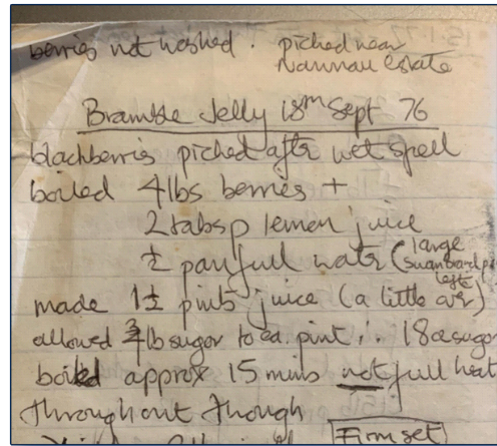 berries not washed . picked near
Nannau Estate
Bramble Jelly 18th Sept 76
blackberries picked after wet spell
boiled 4lbs berries +
2 tabsp lemon juice
½ pan full water (large
left)
made 1½ pints juice (a little over)
allowed ¾lb sugar to ea. pint ∴ 18oz sugar
boiled approx 15 mins not full heat
throughout though
Firm set